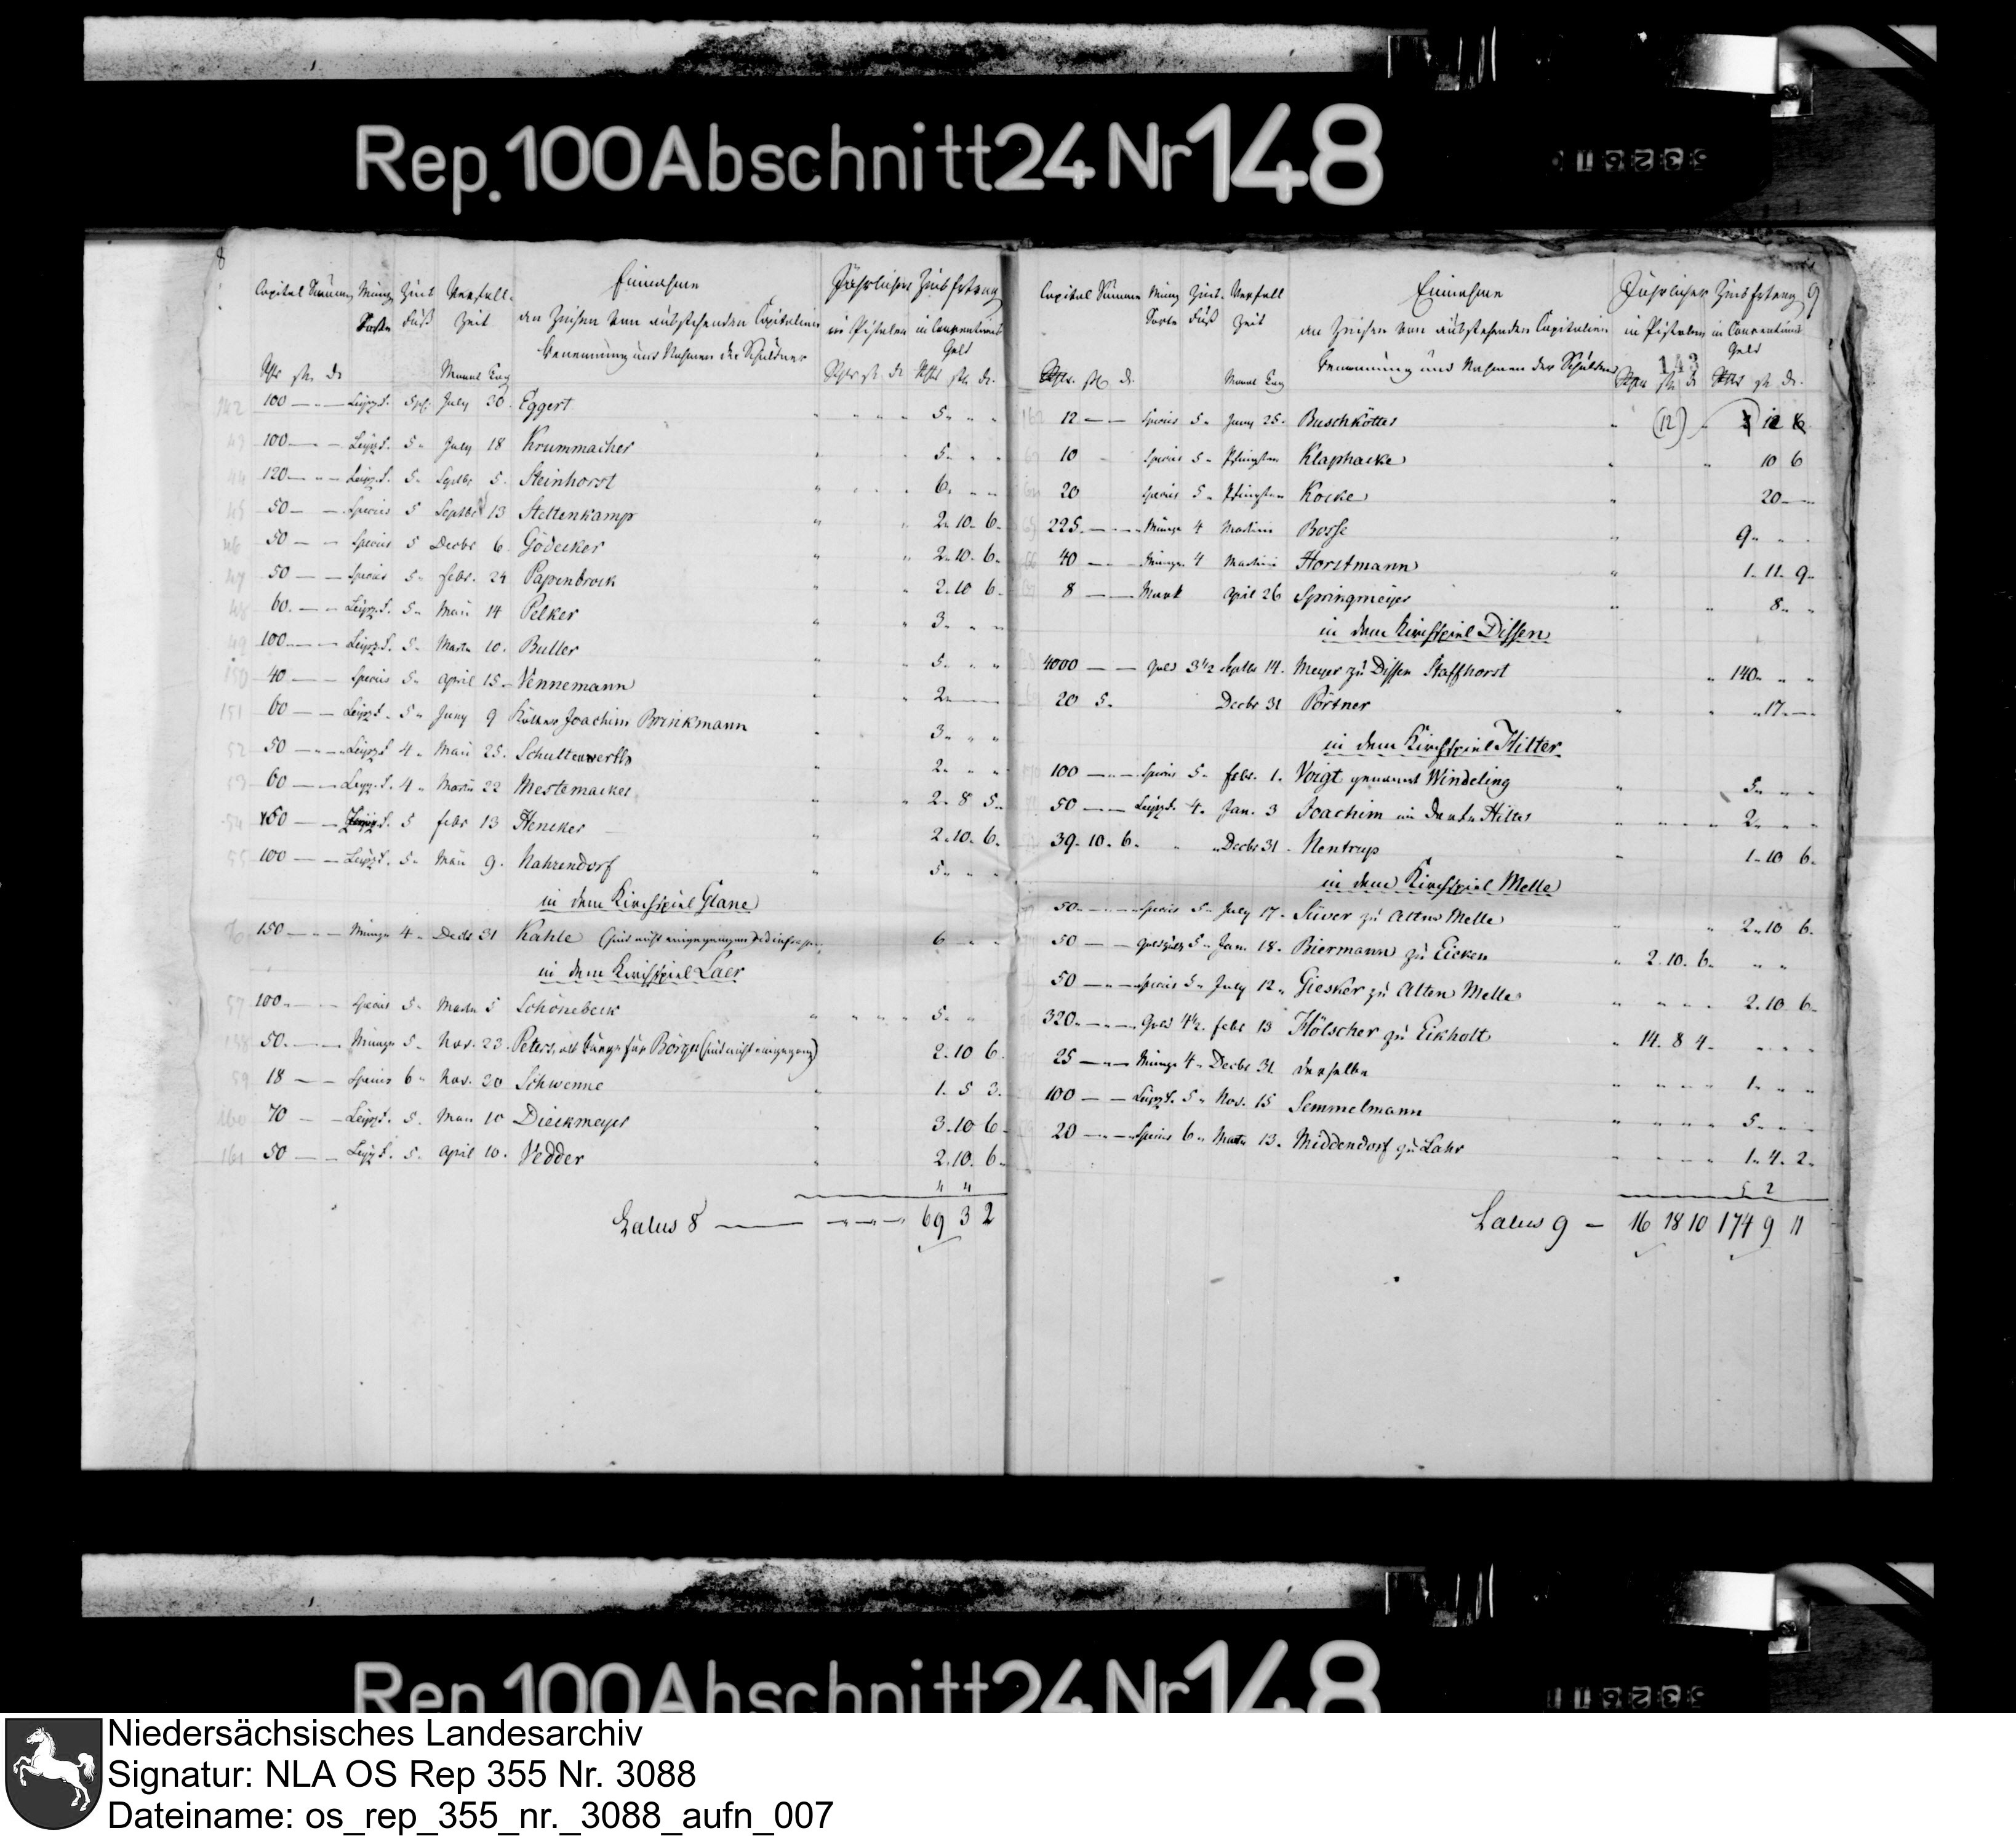 Rep. 100 Abschnitt 24 Nr 148
8
Capital Summe Münz Zins Verfall- Einnahme Jährlicher Zins Ertrag
Sorte Fuß Zeit an Zinsen von ausstehenden Capitalien in Pistolen in Conventions
Benennung und Nahmen der Schuldner Geld
Monat Tag
142 100 Leipz. 5 July 30 Eggert 5
43 100 Leipz. 5 July 18 Krummacher 5
44 120 Leipz. 5 Septbr 5 Steinhorst 6
45 50 Species 5 Septbr 13 Steltenkamp 2. 10. 6.
46 50 Species 5 Decbr 6 Gödecker 2. 10. 6.
47 50 Species 5 Febr. 24 Papenbrock 2. 10. 6.
48 60 Leipz. 5 Mai 14 Pelker 3
49 100 Leipz. 5 Martii 10 Buller 5
150 40 Species 5 April 15 Vennemann 2
151 60 Leipz. 5 Juny 9 Joachim Brinkmann 3
52 50 Leipz. 4 Mai 25 Schultenwerth 2
53 60 Leipz. 4 Martii 22 Mestemacher 2. 8 5
54 50 Leipz. 5 Febr 13 Hencker 2. 10. 6.
55 100 Leipz. 5 Mai 9 Nahrendorf 5
in dem Kirchspiel Glane
56 150 Münze 4 Decbr 31 Kahle 6
in dem Kirchspiel Laer
57 100 Species 5 Martii 5 Schönebeck 5
158 50 Münze 5 Nov. 23 Peters als Bürge für 2. 10 6
59 18 Species 6 Nov. 20 Schwenne 1. 5 3.
160 70 Leipz. 5 Mai 10 Dieckmeyer 3. 10 6
161 50 Leipz. 5 April 10 Vedder 2. 10. 6
Latus 8 69 3 2
9
Capital Summe Münz Zins- Verfall Einnahme Jährlicher Zins Ertrag
Sorte Fuß Zeit an Zinsen von ausstehenden Capitalien in Pistolen in Conventions
Benennung und Nahmen der Schuldner Geld
143
Monat Tag
12 Species 5 Juny 25 Buschkötter (12) 12
10 Species 5 Pfingsten Klaphacke 10 6
20 Species 5 Pfingsten Kocke 20
225 Münze 4 Martini Bosse 9
40 Münze 4 Martini Horstmann 1. 11. 9
8 Mark April 26 Springmeyer 8
in dem Kirchspiel Dissen
4000 Gold 3 1/2 Septbr 14. Meyer zu Dissen Staffhorst 140
20 5. Decbr 31 Pörtner 17
in dem Kirchspiel Hilter
100 Species 5 Febr. 1. Voigt genannt Windeling 5
50 Leipz. 4 Jan. 3 Joachim Hilter 2
39. 10. 6. Decbr 31 Nentrup 1. 10 6.
in dem Kirchspiel Melle
50 Species 5 July 17 Süver zu Alten Melle 2. 10 6.
50 5 Jan. 18. Biermann zu Eicken 2. 10. 6.
50 Species 5 July 12 Giesker zu Alten Melle 2. 10 6.
320 Gold 4 1/2 Febr 13 Hölscher zu Eikholt 14. 8 4.
25 Münze 4 Decbr 31 derselbe 1
100 Leipz. 5 Nov. 15 Semmelmann 5
20 Species 6 Martii 13. Middendorf zu Lahr 1. 4. 2.
5 2
Latus 9 16 18 10 174 9 11
Rep. 100 Abschnitt 24 Nr 148
Niedersächsisches Landesarchiv
Signatur: NLA OS Rep 355 Nr. 3088
Dateiname: os_rep_355_nr._3088_aufn_007